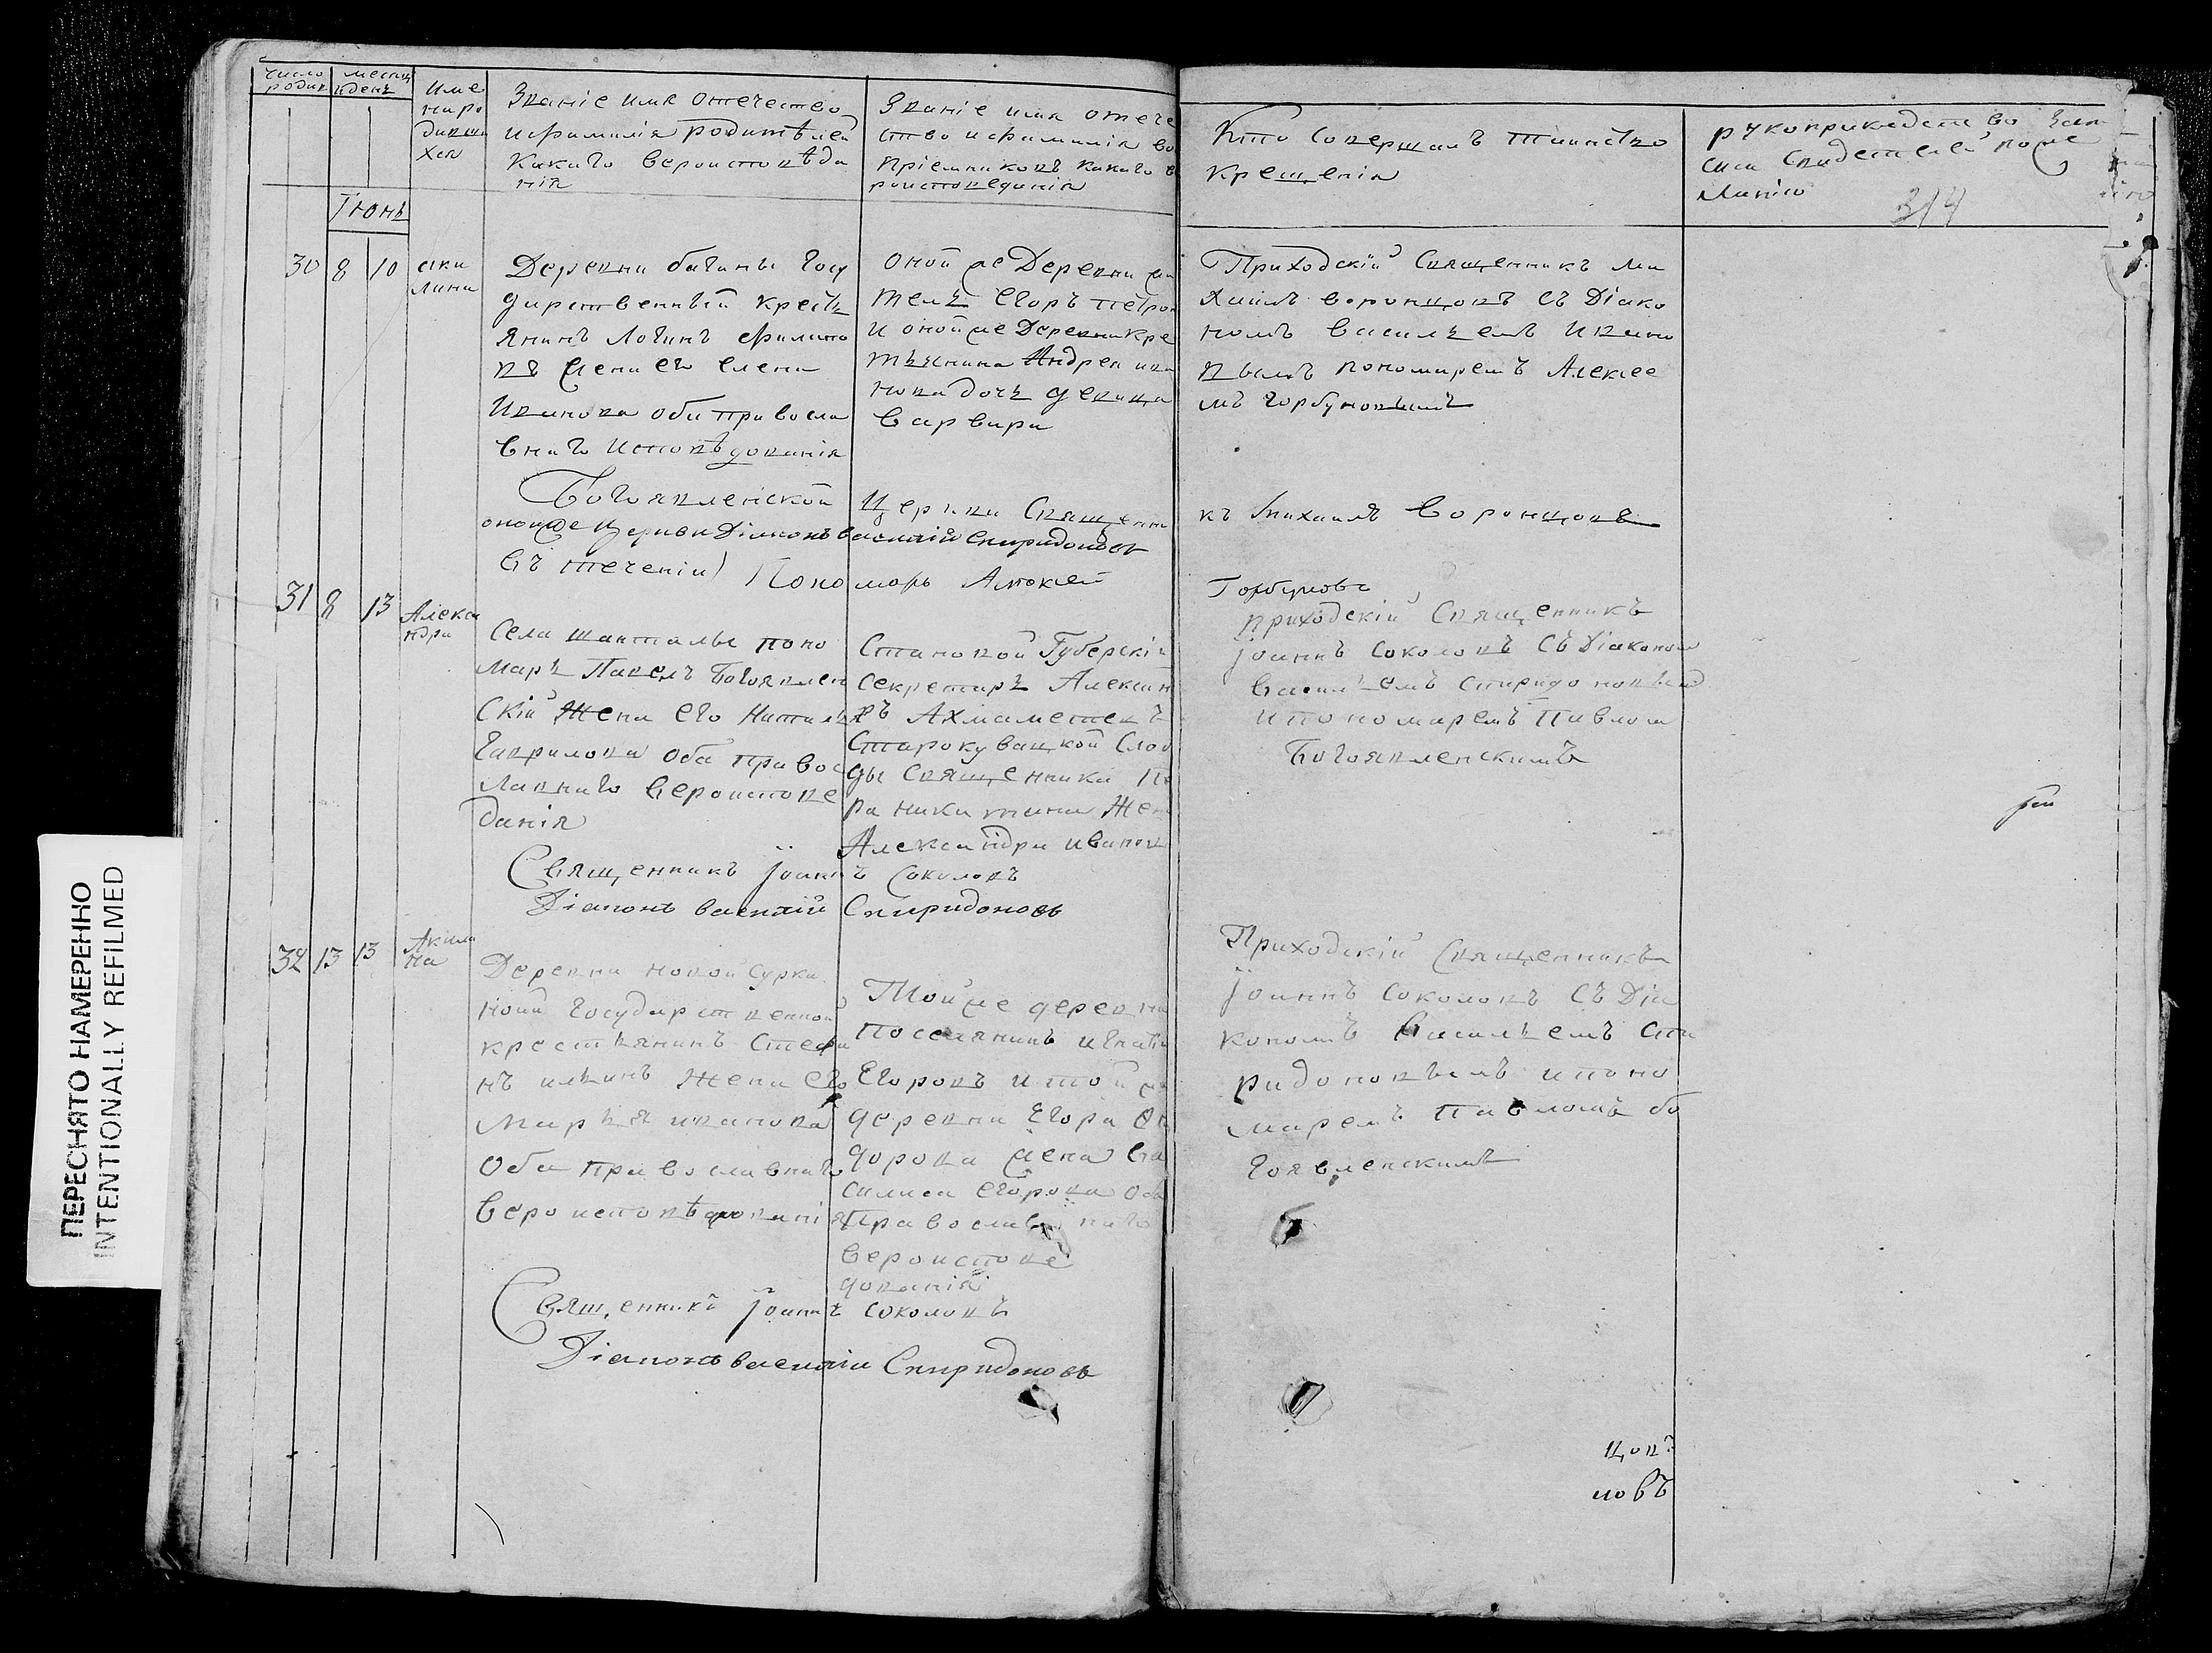 число родив
месяц и день
Име
на ро
дивши
хся
Званіе имя отечество
и фамилія родителей
какаго вероисповѣда
нія
Званіе имя отече
ство и фамилія во
пріемниковъ какаго в
роисповеданія
Кто совершалъ таинство
крещенія
рукоприкадство зап
ски свидетелей по же
ланію
314
Іюнь
30 8 10
аки
лина
Деревни багины госу
дарственный крестъ
янинъ логинъ филипо
въ жена его елена
Иванова оба правосла
внаго исповѣдованія
оной же Деревни жи
тель егоръ петро
и оной же Деревни кре
тьянина Андрея ива
нова дочь девица
варвара
Приходскій Священникъ Ми
хаилъ воронцовъ съ Діако
номъ васильемъ ивано
вымъ пономаремъ Алексее
мъ горбуновымъ
Богоявленской Церкви Священни
къ Михаилъ Воронцовъ
оной же Церкви Діаконъ василій Спиридоновъ
въ течении Пономарь Алексей
Горбуновъ
31 8 13
Алекса
ндра
Села шанталы поно
марь Павелъ Богоявлен
скій Жена его Наталья
Гаврилова оба правос
лавнаго вероисповe
данія
Становой Губерскій
секретарь Александ
ръ Ахмаметевъ
Старокувацкой Слоб
ды священника Пе
ра никитина Жена
Александра иванов
приходскій Священникъ
Іоаннъ Соколовъ съ Діаконом
Васильемъ спиридоновым
и пономаремъ Павлом
Богоявленскимъ
Священникъ Іоаннъ Соколовъ
Діаконъ василій Спиридоновъ
32 13 13
Акили
на
Деревни новой сурка
ной государственной
крестьянинъ Стефа
нъ ильинъ Жена его
Марья иванова
Оба православнаго
вероисповѣдованія
Той же деревни
поселянинъ игнатій
Егоровъ и той же
деревни Егора Фе
дорова жена Ва
силиса егорова оба
православнаго
вероисповe
дованія
Приходскій Священникъ
Іоаннъ Соколовъ съ Діа
кономъ Васильемъ спи
ридоновымъ и поно
маремъ Павломъ бо
гоявленскимъ
Священникъ Іоаннъ соколовъ
Діаконъ василій Спиридоновъ
цовъ
новъ
ПЕРЕСНЯТО НАМЕРЕННО
INTENTIONALLY REFILMED